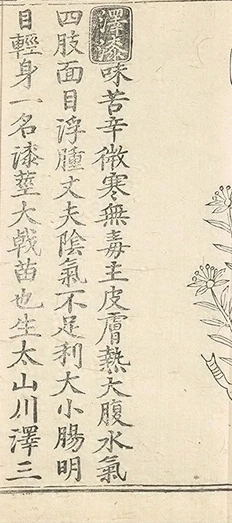 澤漆味苦辛微寒無毒主皮膚熱大腹水氣
四肢面目浮腫丈夫陰氣不足利大小腸明
目輕身一名漆莖大戟苗也生太山川澤三